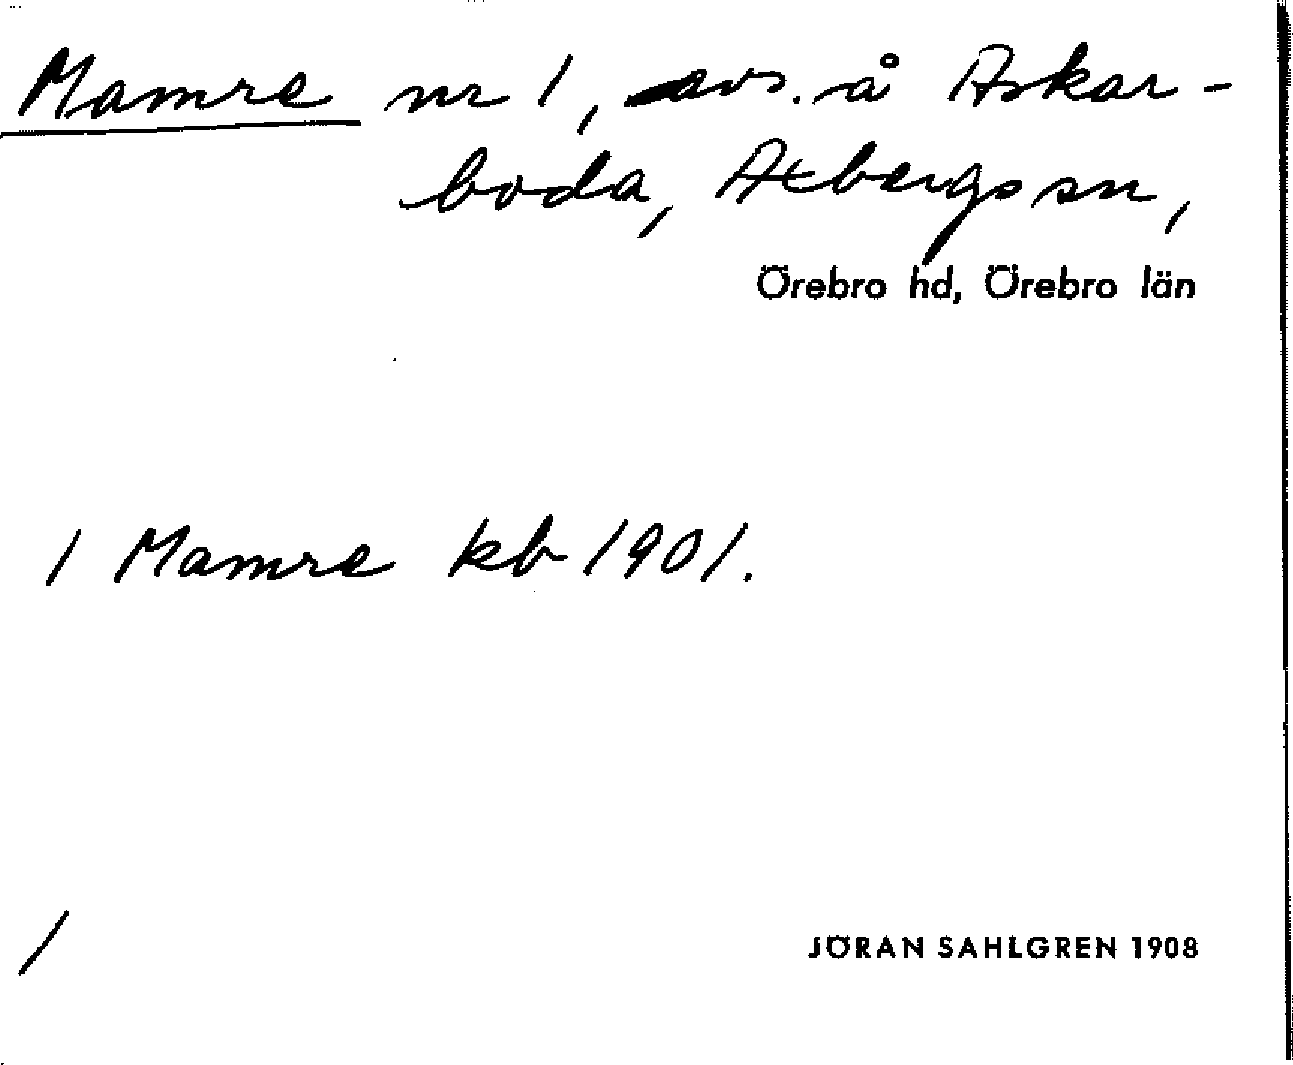 Mamre nr 1, avs. å Askar-
boda, Axbergs sn,
Örebro hd, Örebro län
1 Mamre kb 1901.
1
JÖRAN SAHLGREN 1908